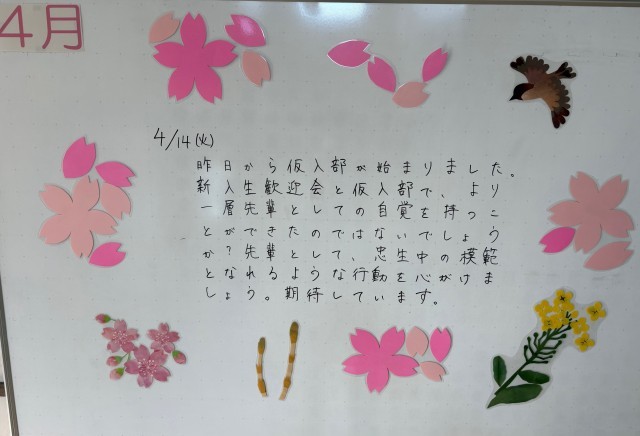 4月
4/14(火)
昨日から仮入部が始まりました。
新入生歓迎会と仮入部で、より
一層先輩としての自覚を持つこ
とができたのではないでしょう
か？先輩として、忠生中の模範
となれるような行動を心がけま
しょう。期待しています。